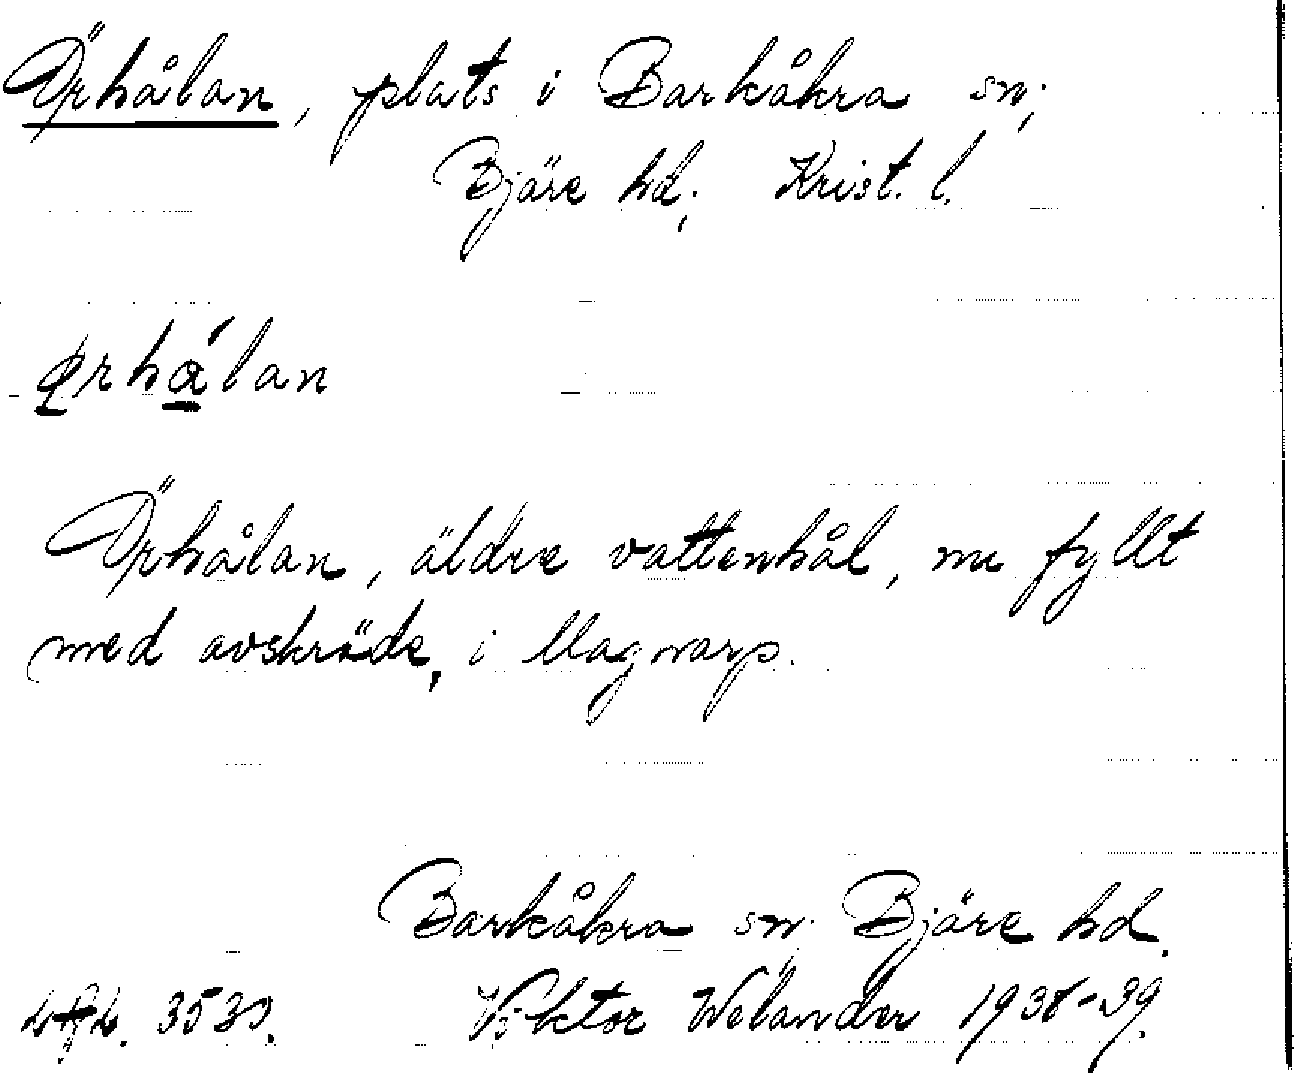 Örhålan, plats i Barkåkra sn;
Bjäre hd; Krist. l.
Örhålan, äldre vattenhål, nu fyllt
med avskräde, i Magnarp.
Barkåkra sn. Bjäre hd.
Viktor Welander